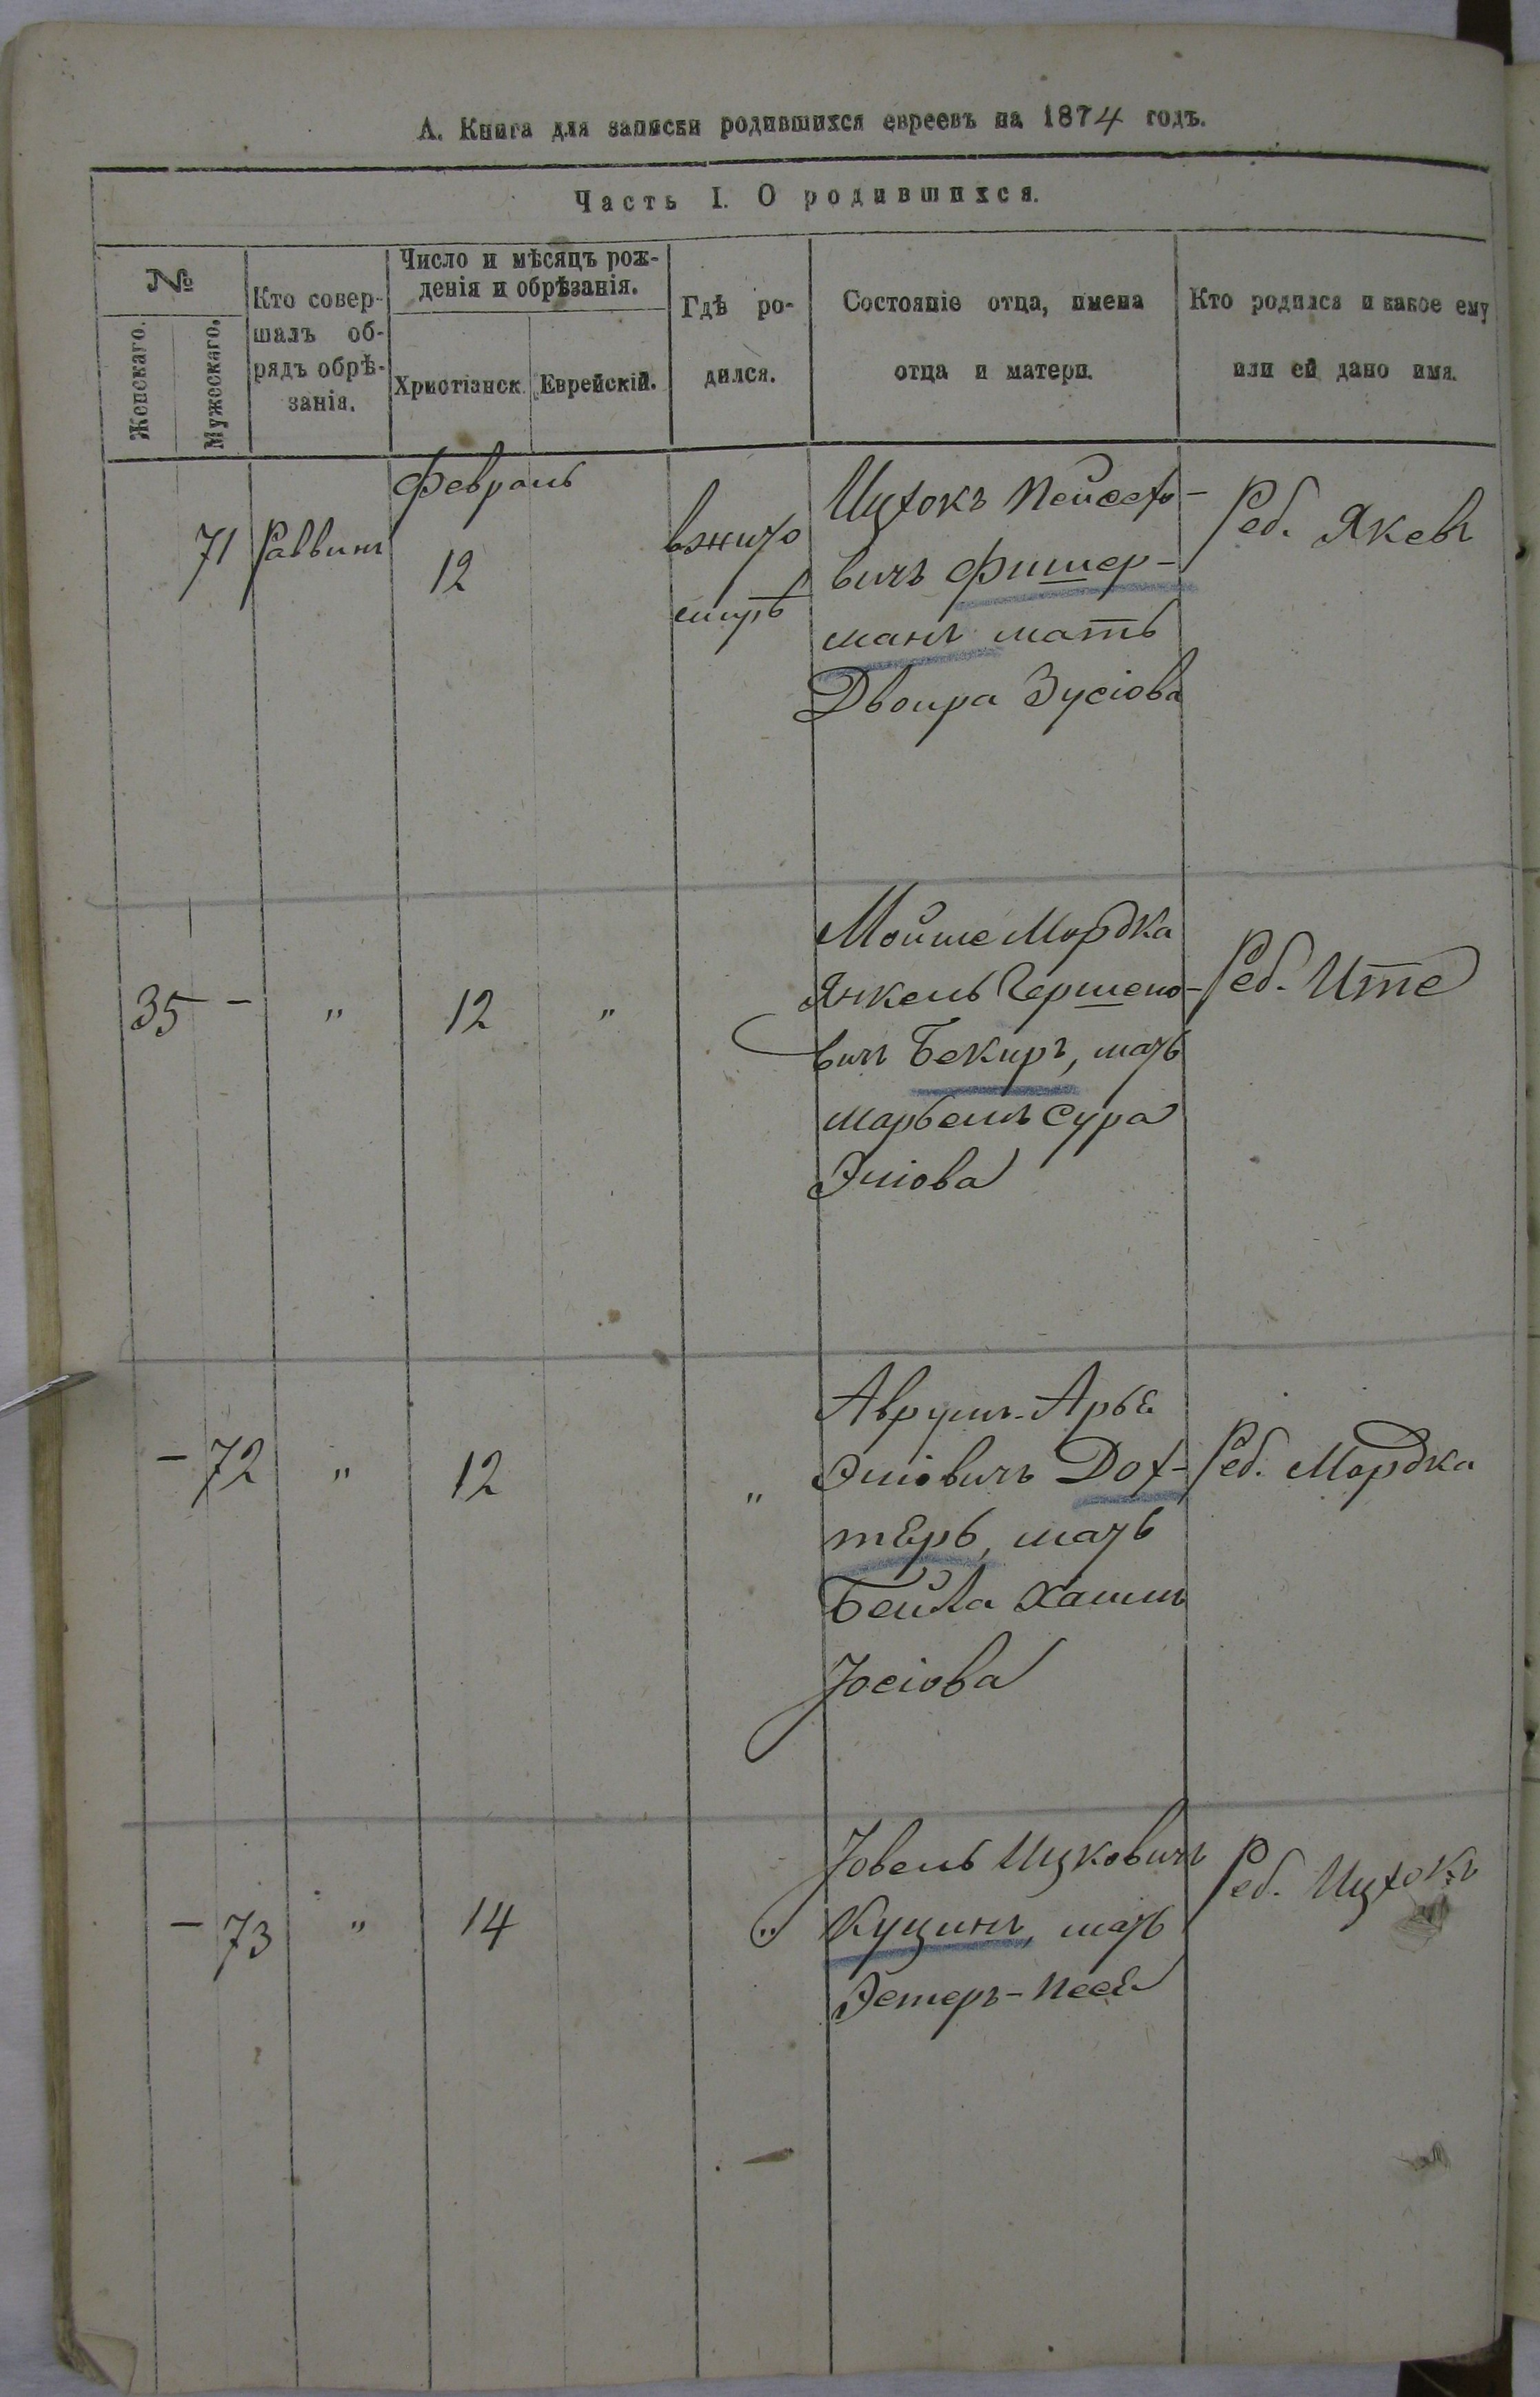 А. Книга для записки родившихся евреевъ на 1874 годъ.
Часть I. О родившихся.
№
Женскаго.
Мужескаго.
Кто совер-
шалъ об-
рядъ обрѣ-
занія.
Число и мѣсяцъ рож-
денія и обрѣзанія.
Христіанск.
Еврейскій.
Гдѣ ро-
дился.
Состояніе отца, имена
отца и матери.
Кто родился и какое ему
или ей дано имя.
71
Раввинъ
Февраль
12
вжито
мирѣ
Ицхокъ Пейсахо-
вичъ Фишер-
манъ мать
Двойра Зусіова
Реб. Якевъ
35 -
"
12
"
Мойше Мордка
Янкель Гершено-
вичъ Бекиръ, мать
Марьемъ Сура
Эліова
Реб. Ите
- 72
"
12
"
Аврумъ-Арье
Эліовичъ Дох-
терь, мать
Бейла
Іосіова
Реб. Мордка
- 73
"
14
"
Іовель Ицковичъ
Куцинъ, мать
Эстеръ-Песе
Реб. Ицхокъ